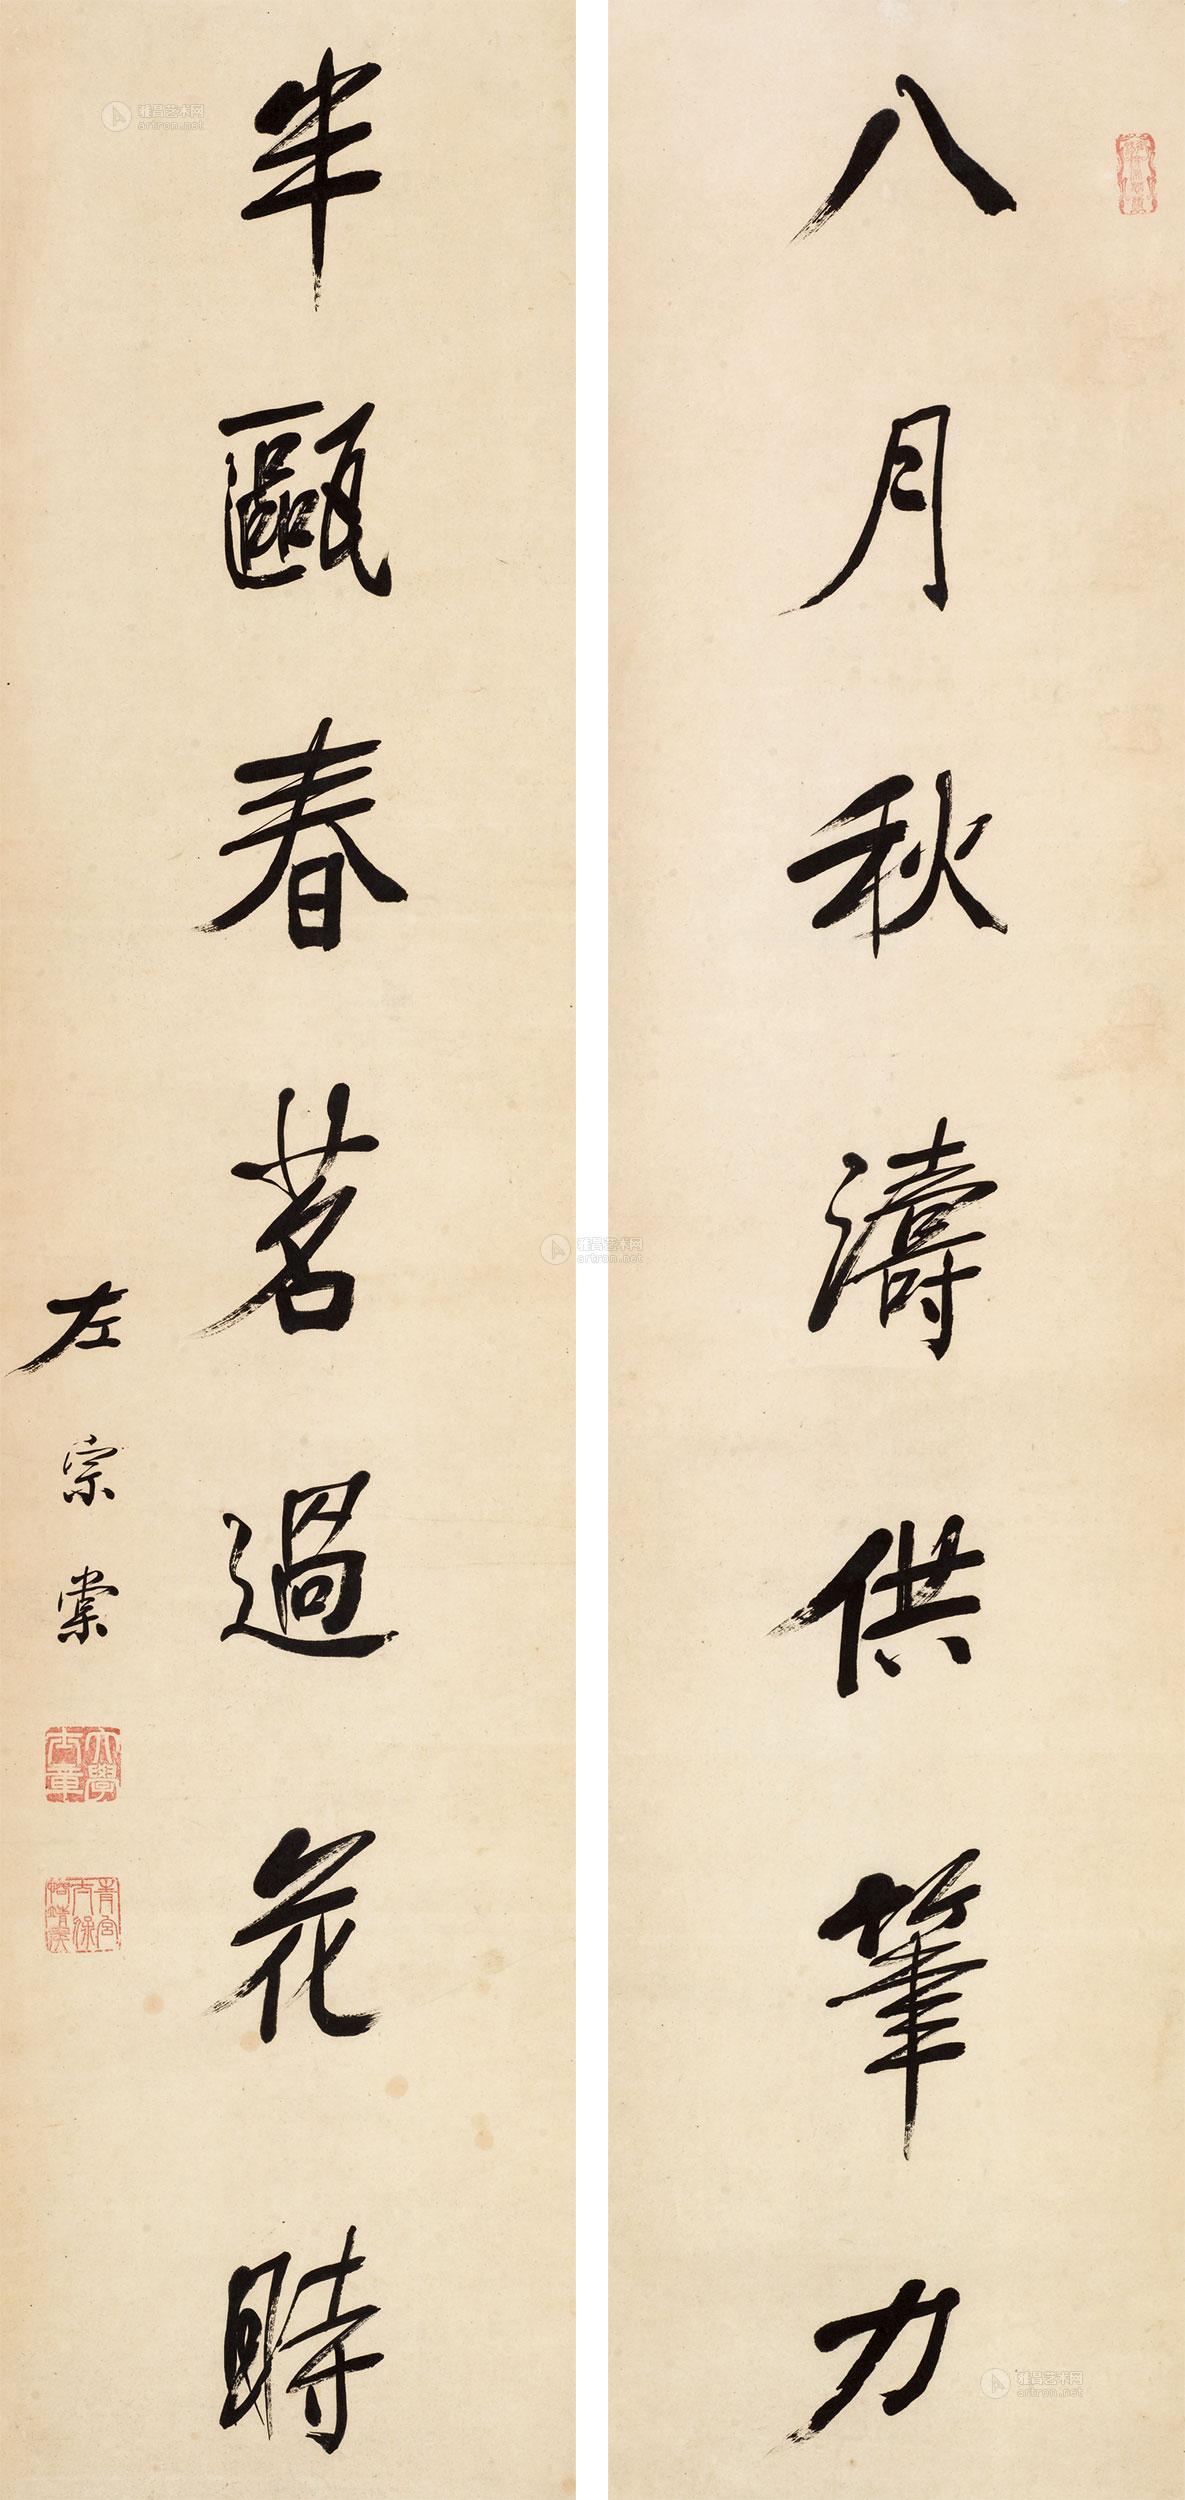 八月秋濤供筆力
半甌春茗過花時
左宗棠
大學士章
青宮太保恪靖侯
雅昌艺术网
artron.net
雅昌艺术网
artron.net
雅昌艺术网
artron.net